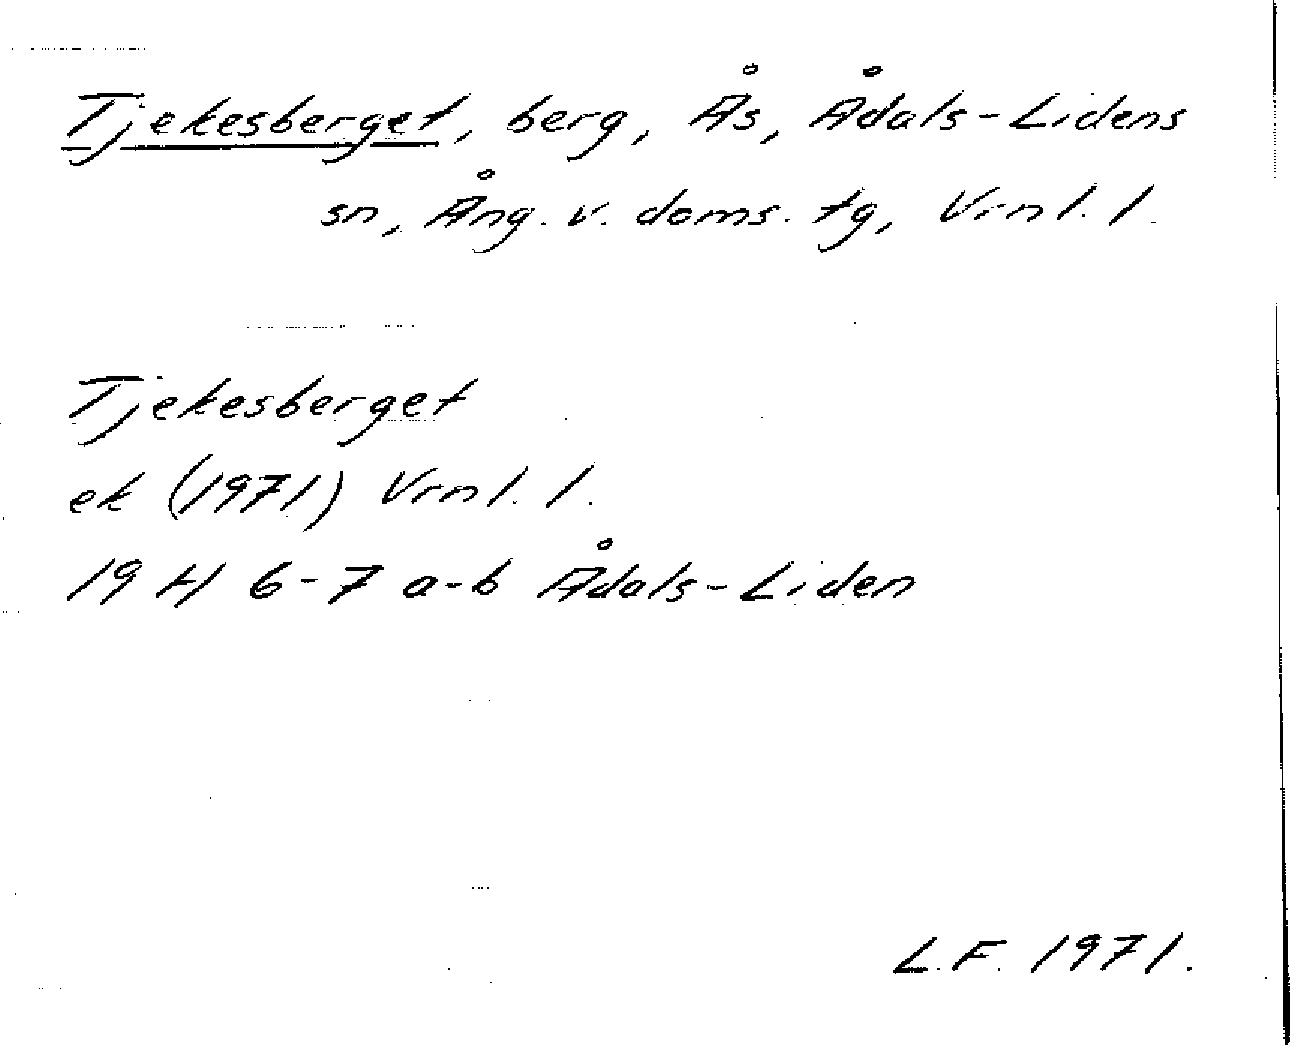 Tjekesberget, berg, Ås, Ådals-Lidens
sn, Ång. v. doms. tg, Vrnl. l.
Tjekesberget
ek (1971) Vrnl. l.
19 H 6-7 a-b Ådals-Liden
L.F. 1971.